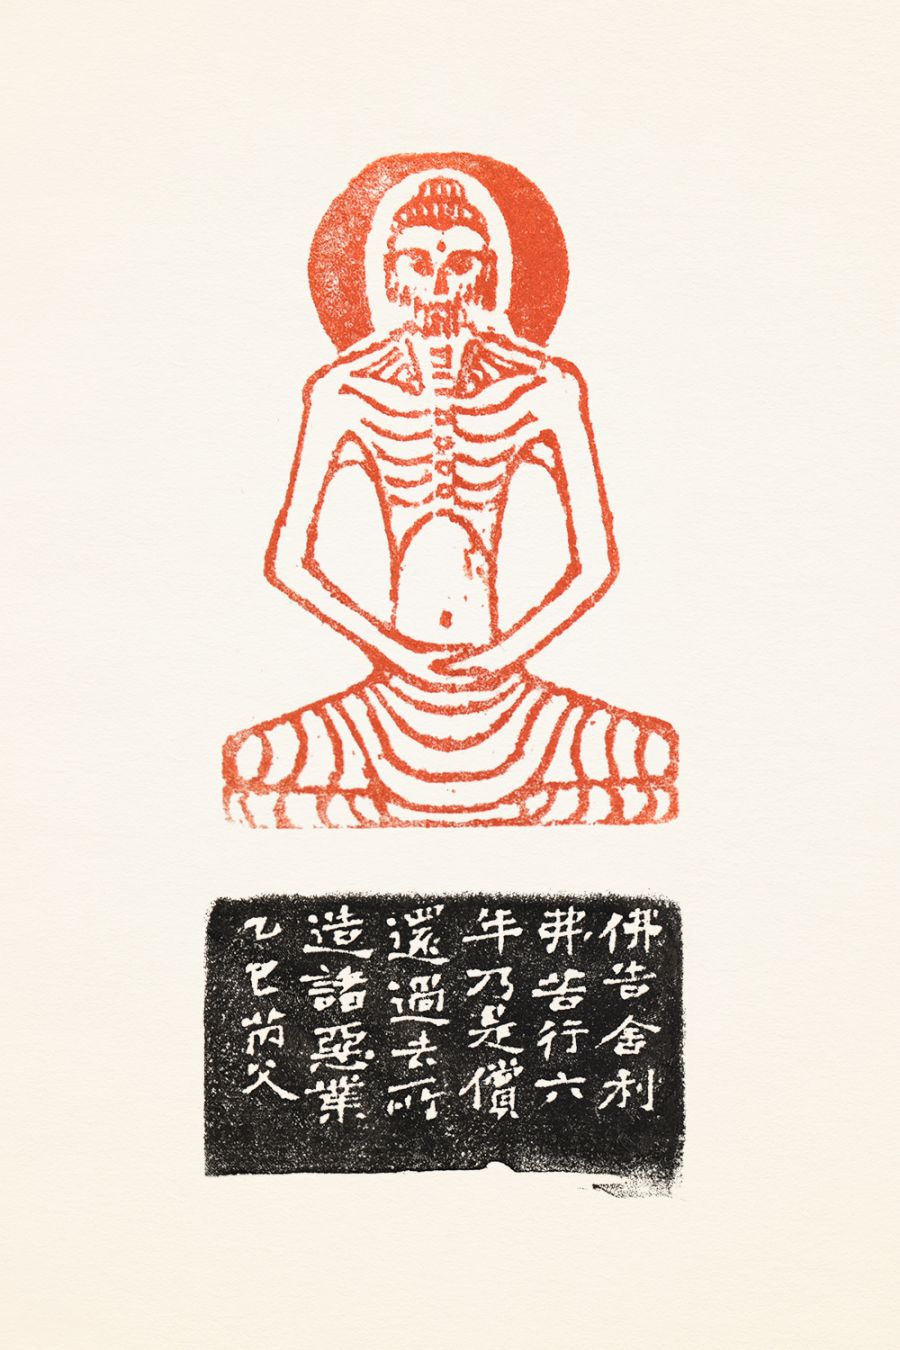 佛告舍利
弗苦行六
年乃是償
還過去所
造諸惡業
乙巳芮父